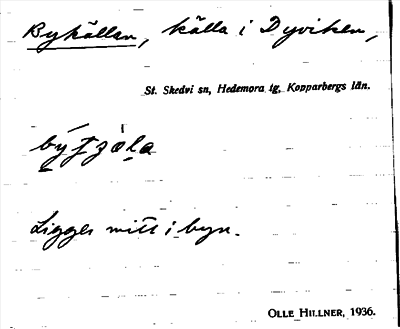 Bykällan, källa i Dyviken,
St. Skedvi sn, Hedemora tg, Kopparbergs län.
Ligger mitt i byn.
OLLE HILLNER, 1936.